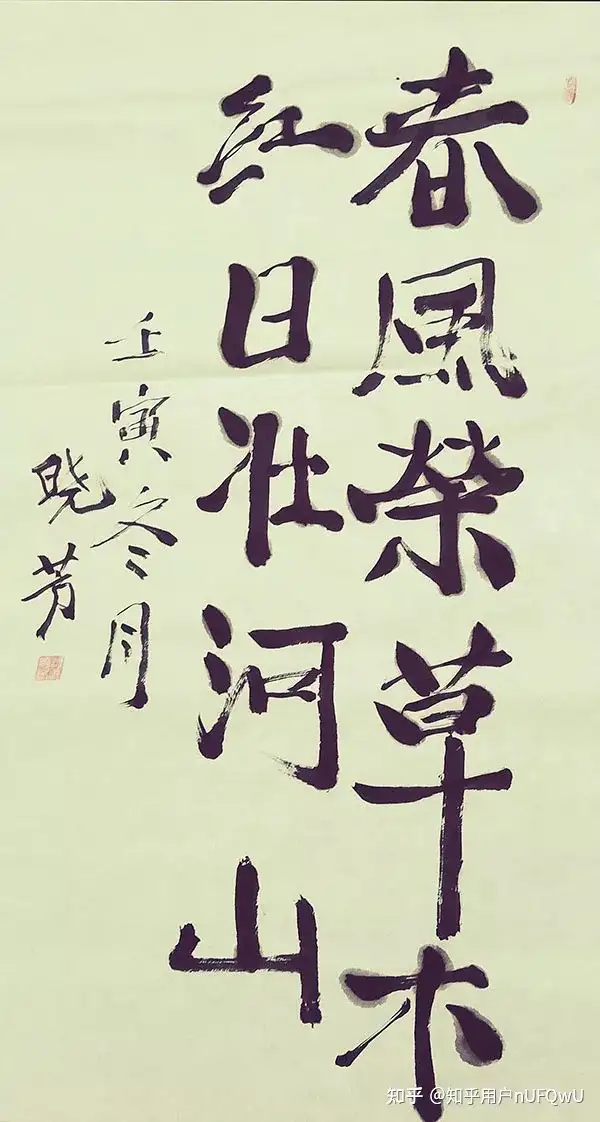 春風榮草木
红日壮河山
壬寅冬月
晓芳
知乎 @知乎用户nUFQwU